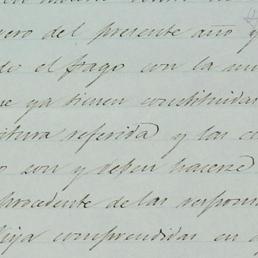 nero del presente año y
do el pago con la mi
ue ya tienen constituidas
itura referida y los cu
o son y deben hacerse
procedente de las respons
hija comprendidas en e